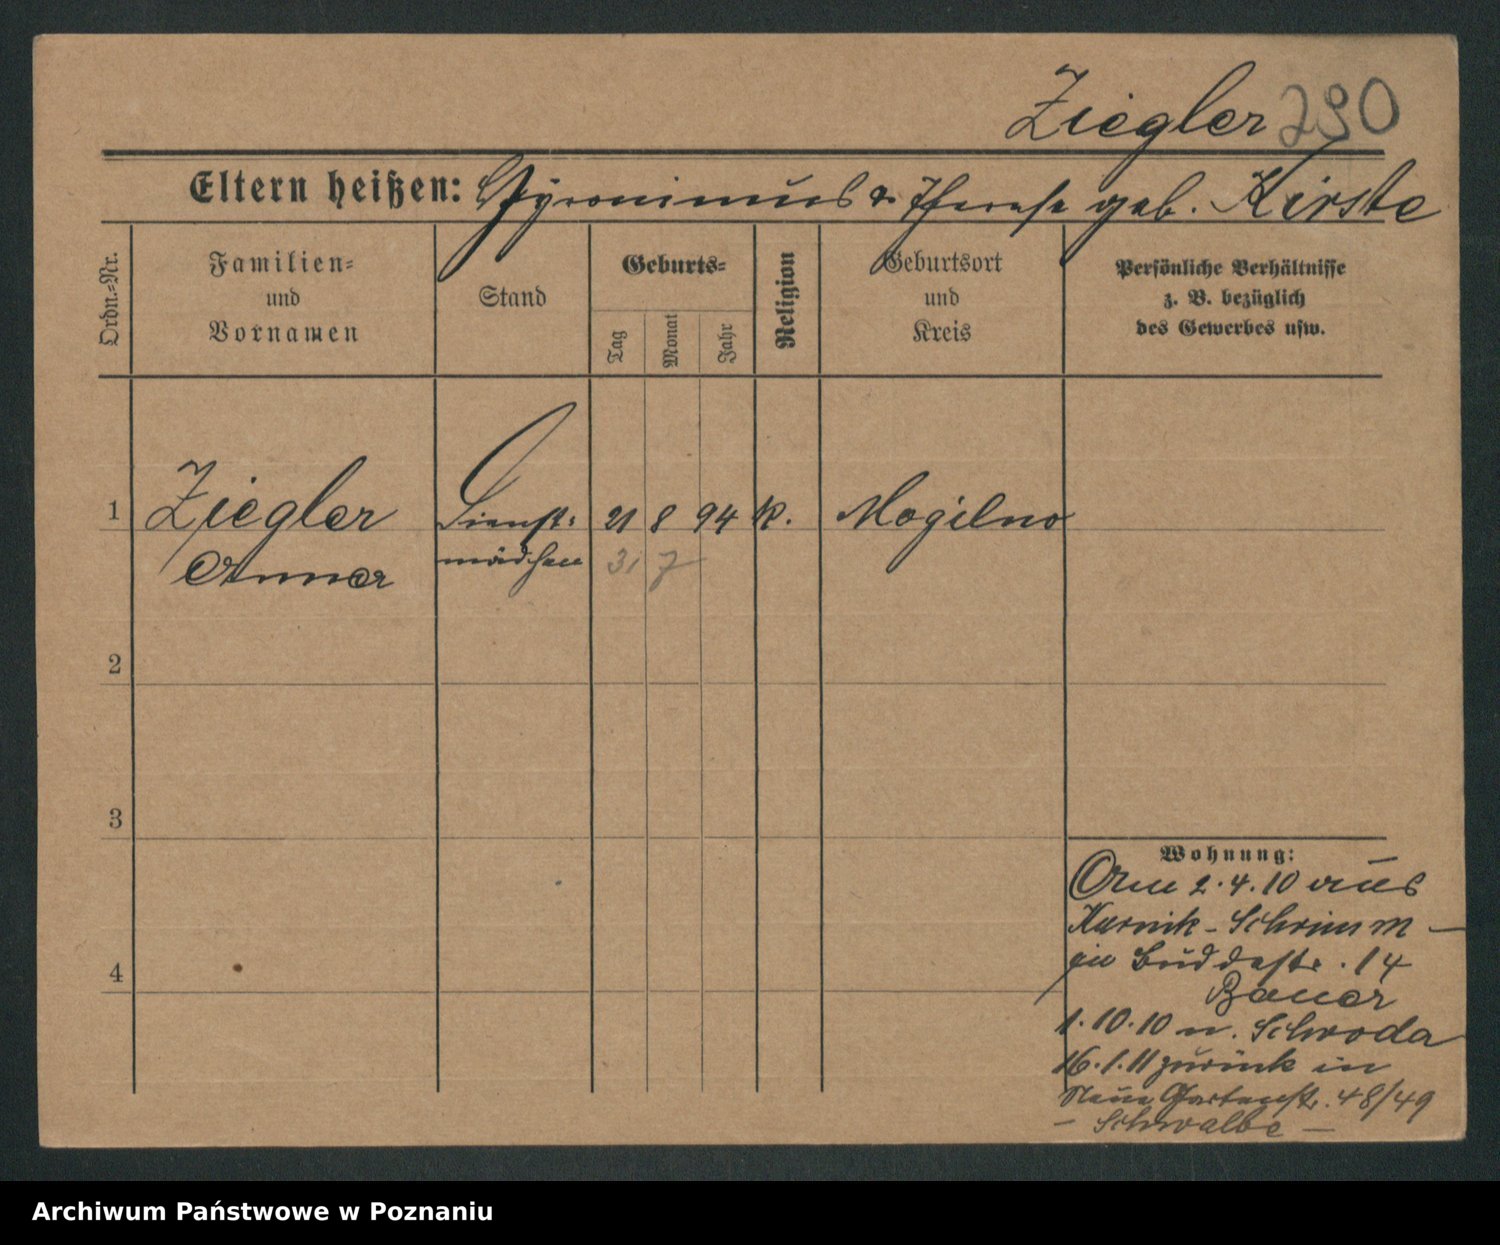 Ziegler 290
Eltern heißen: Hyronimus & Therese geb. Kirste
Ordn.-Nr.
Familien-
und
Vornamen
Stand
Geburts-
Tag
Monat
Jahr
Religion
Geburtsort
und
Kreis
Persönliche Verhältnisse
z. B. bezüglich
des Gewerbes usw.
1 Ziegler Dienst- 21 8 94 k. Mogilno
Anna mädchen 31 7
2
3
4
Wohnung:
Am 2.4.10 aus
Kurnik - Schrimm -
in Buddestr. 14
Bauer
1.10.10 n. Schroda
16.1.11 zurück in
Neue Gartenstr. 48/49
- Schwalbe -
Archiwum Państwowe w Poznaniu